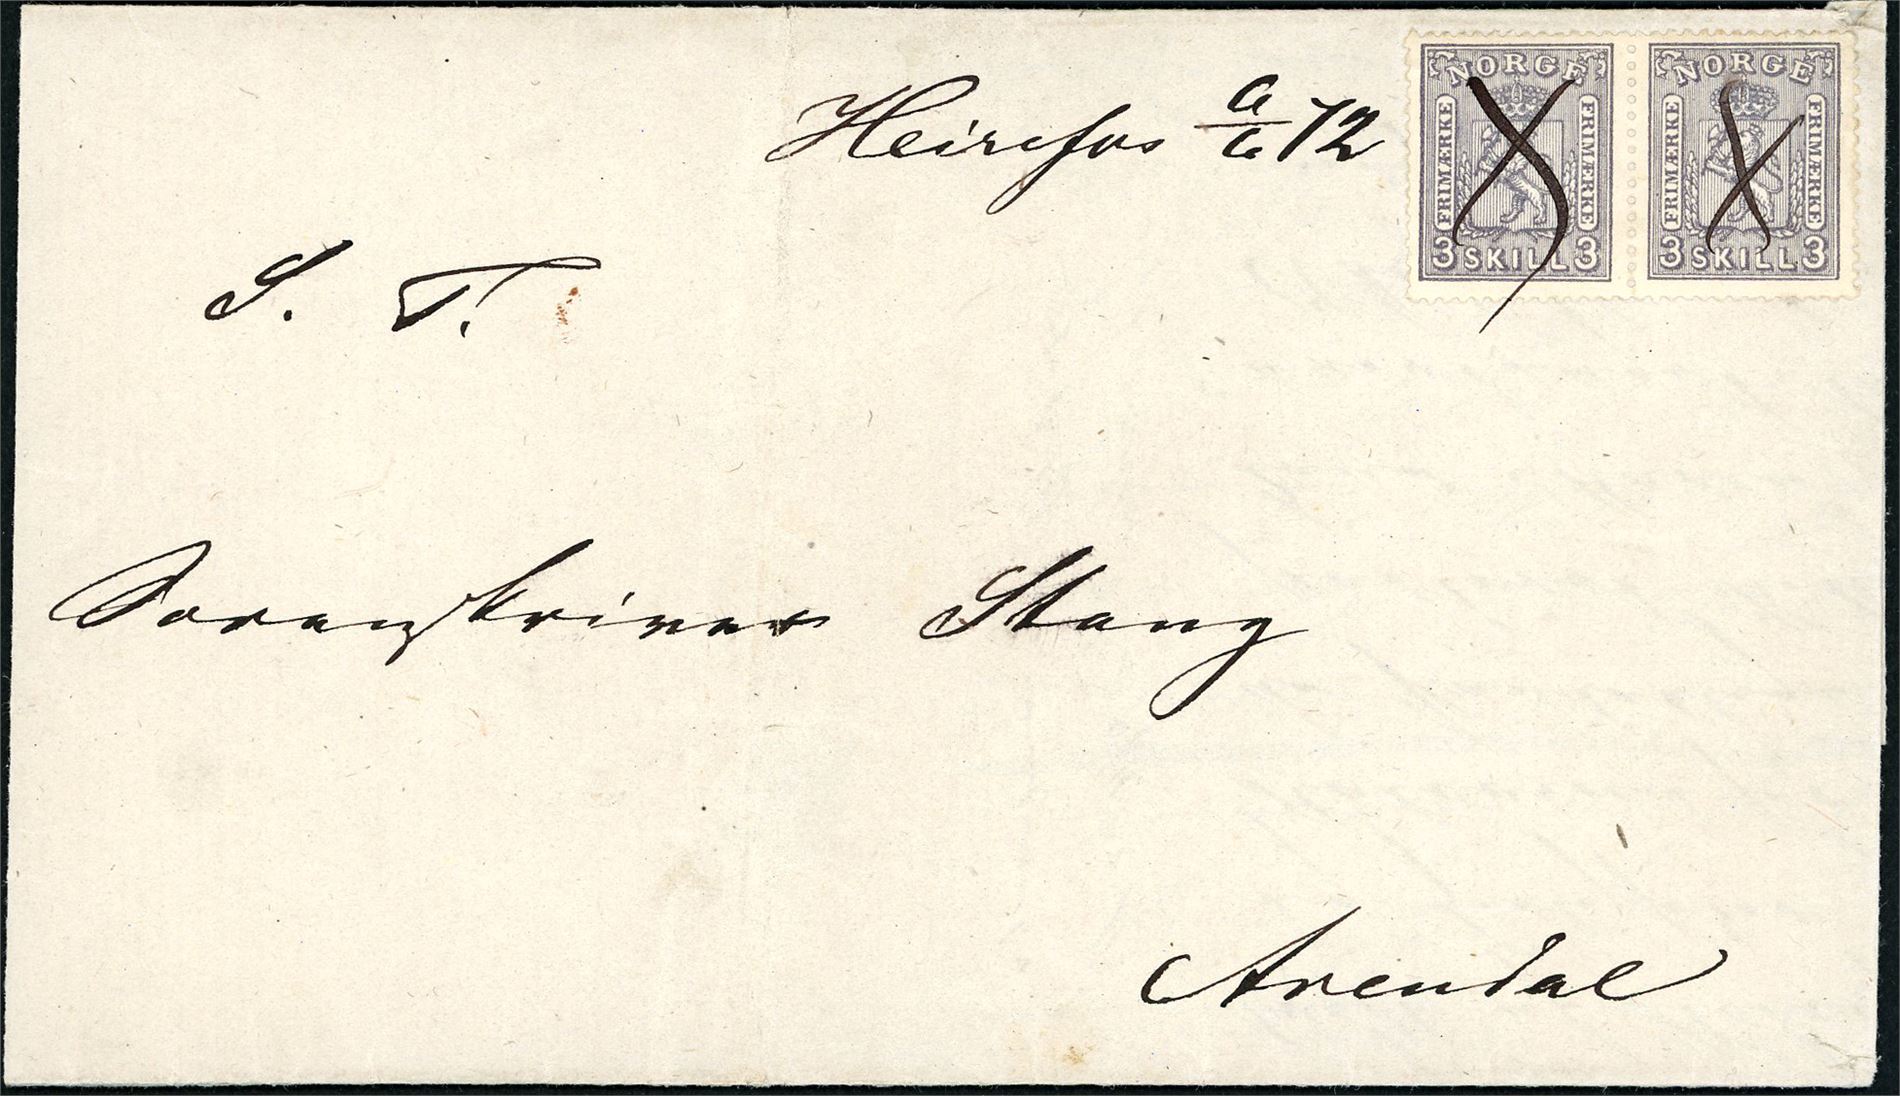 NORGE NORGE
FRIMÆRKE FRIMÆRKE FRIMÆRKE FRIMÆRKE
3 SKILL 3 3 SKILL 3
Heirefos 6/6 72
S. T.
Sorenskriver Stang
Arendal